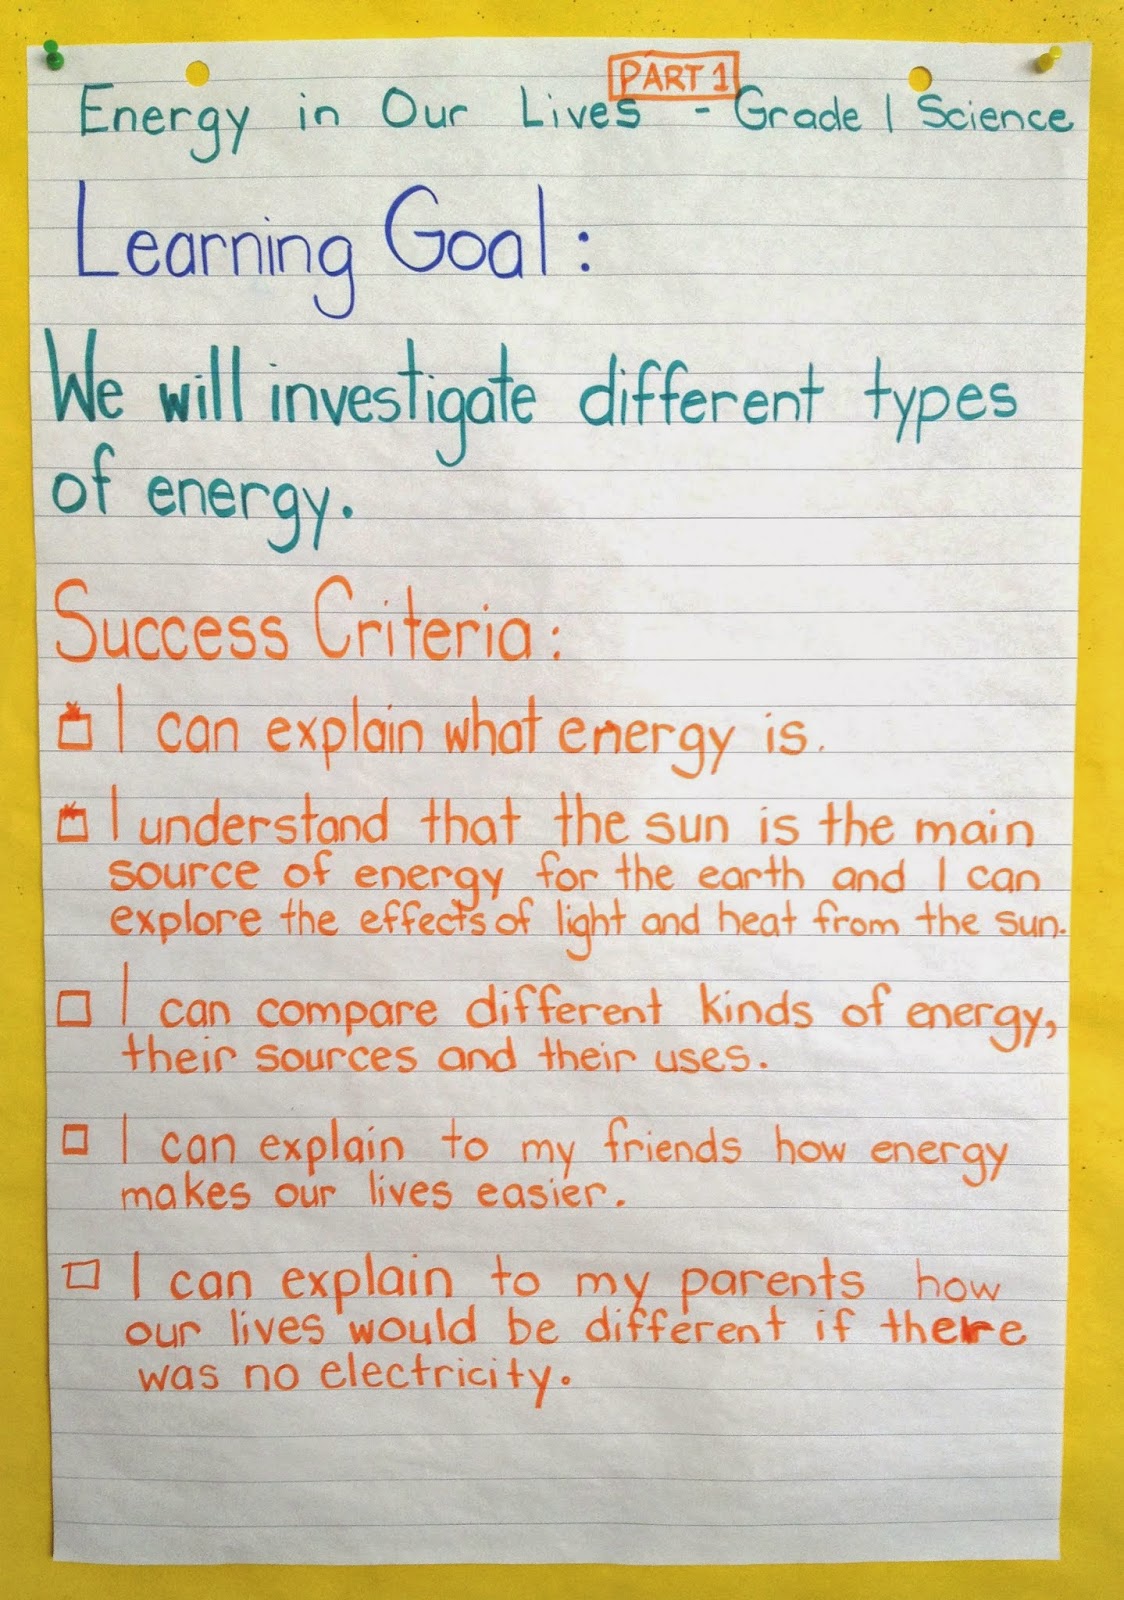 PART 1
Energy in Our Lives - Grade 1 Science
Learning Goal:
We will investigate different types
of energy.
Success Criteria:
I can explain what energy is.
I understand that the sun is the main
source of energy for the earth and I can
explore the effects of light and heat from the sun.
I can compare different kinds of energy,
their sources and their uses.
I can explain to my friends how energy
makes our lives easier.
I can explain to my parents how
our lives would be different if there
was no electricity.